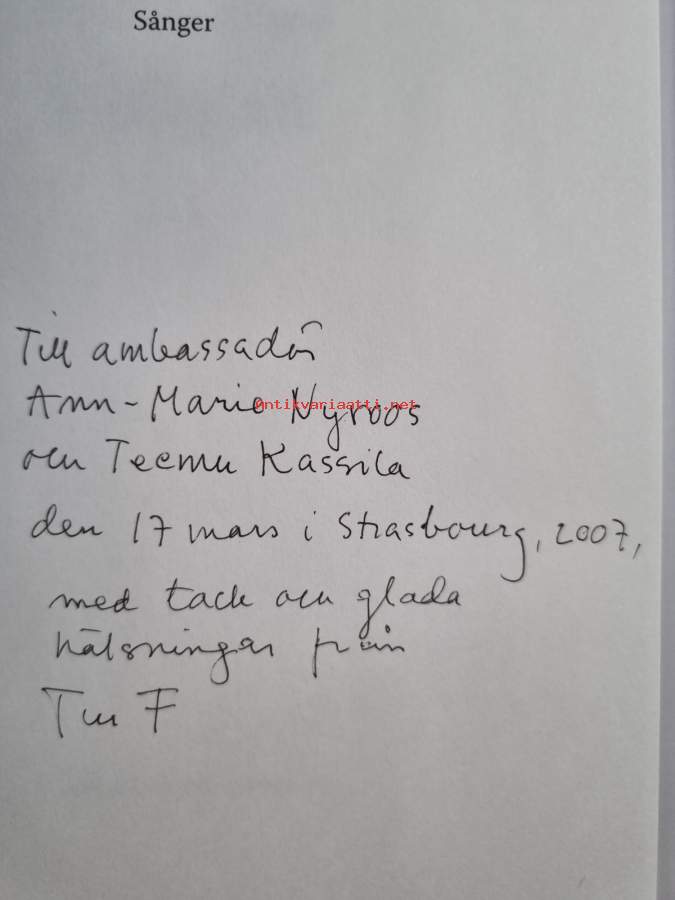 Sånger
Till ambassadör
Ann-Marie Nyroos
antikvariaatti.net
och Teemu Kassila
den 17 mars i Strasbourg, 2007,
med tack och glada
hälsningar från
Tua F